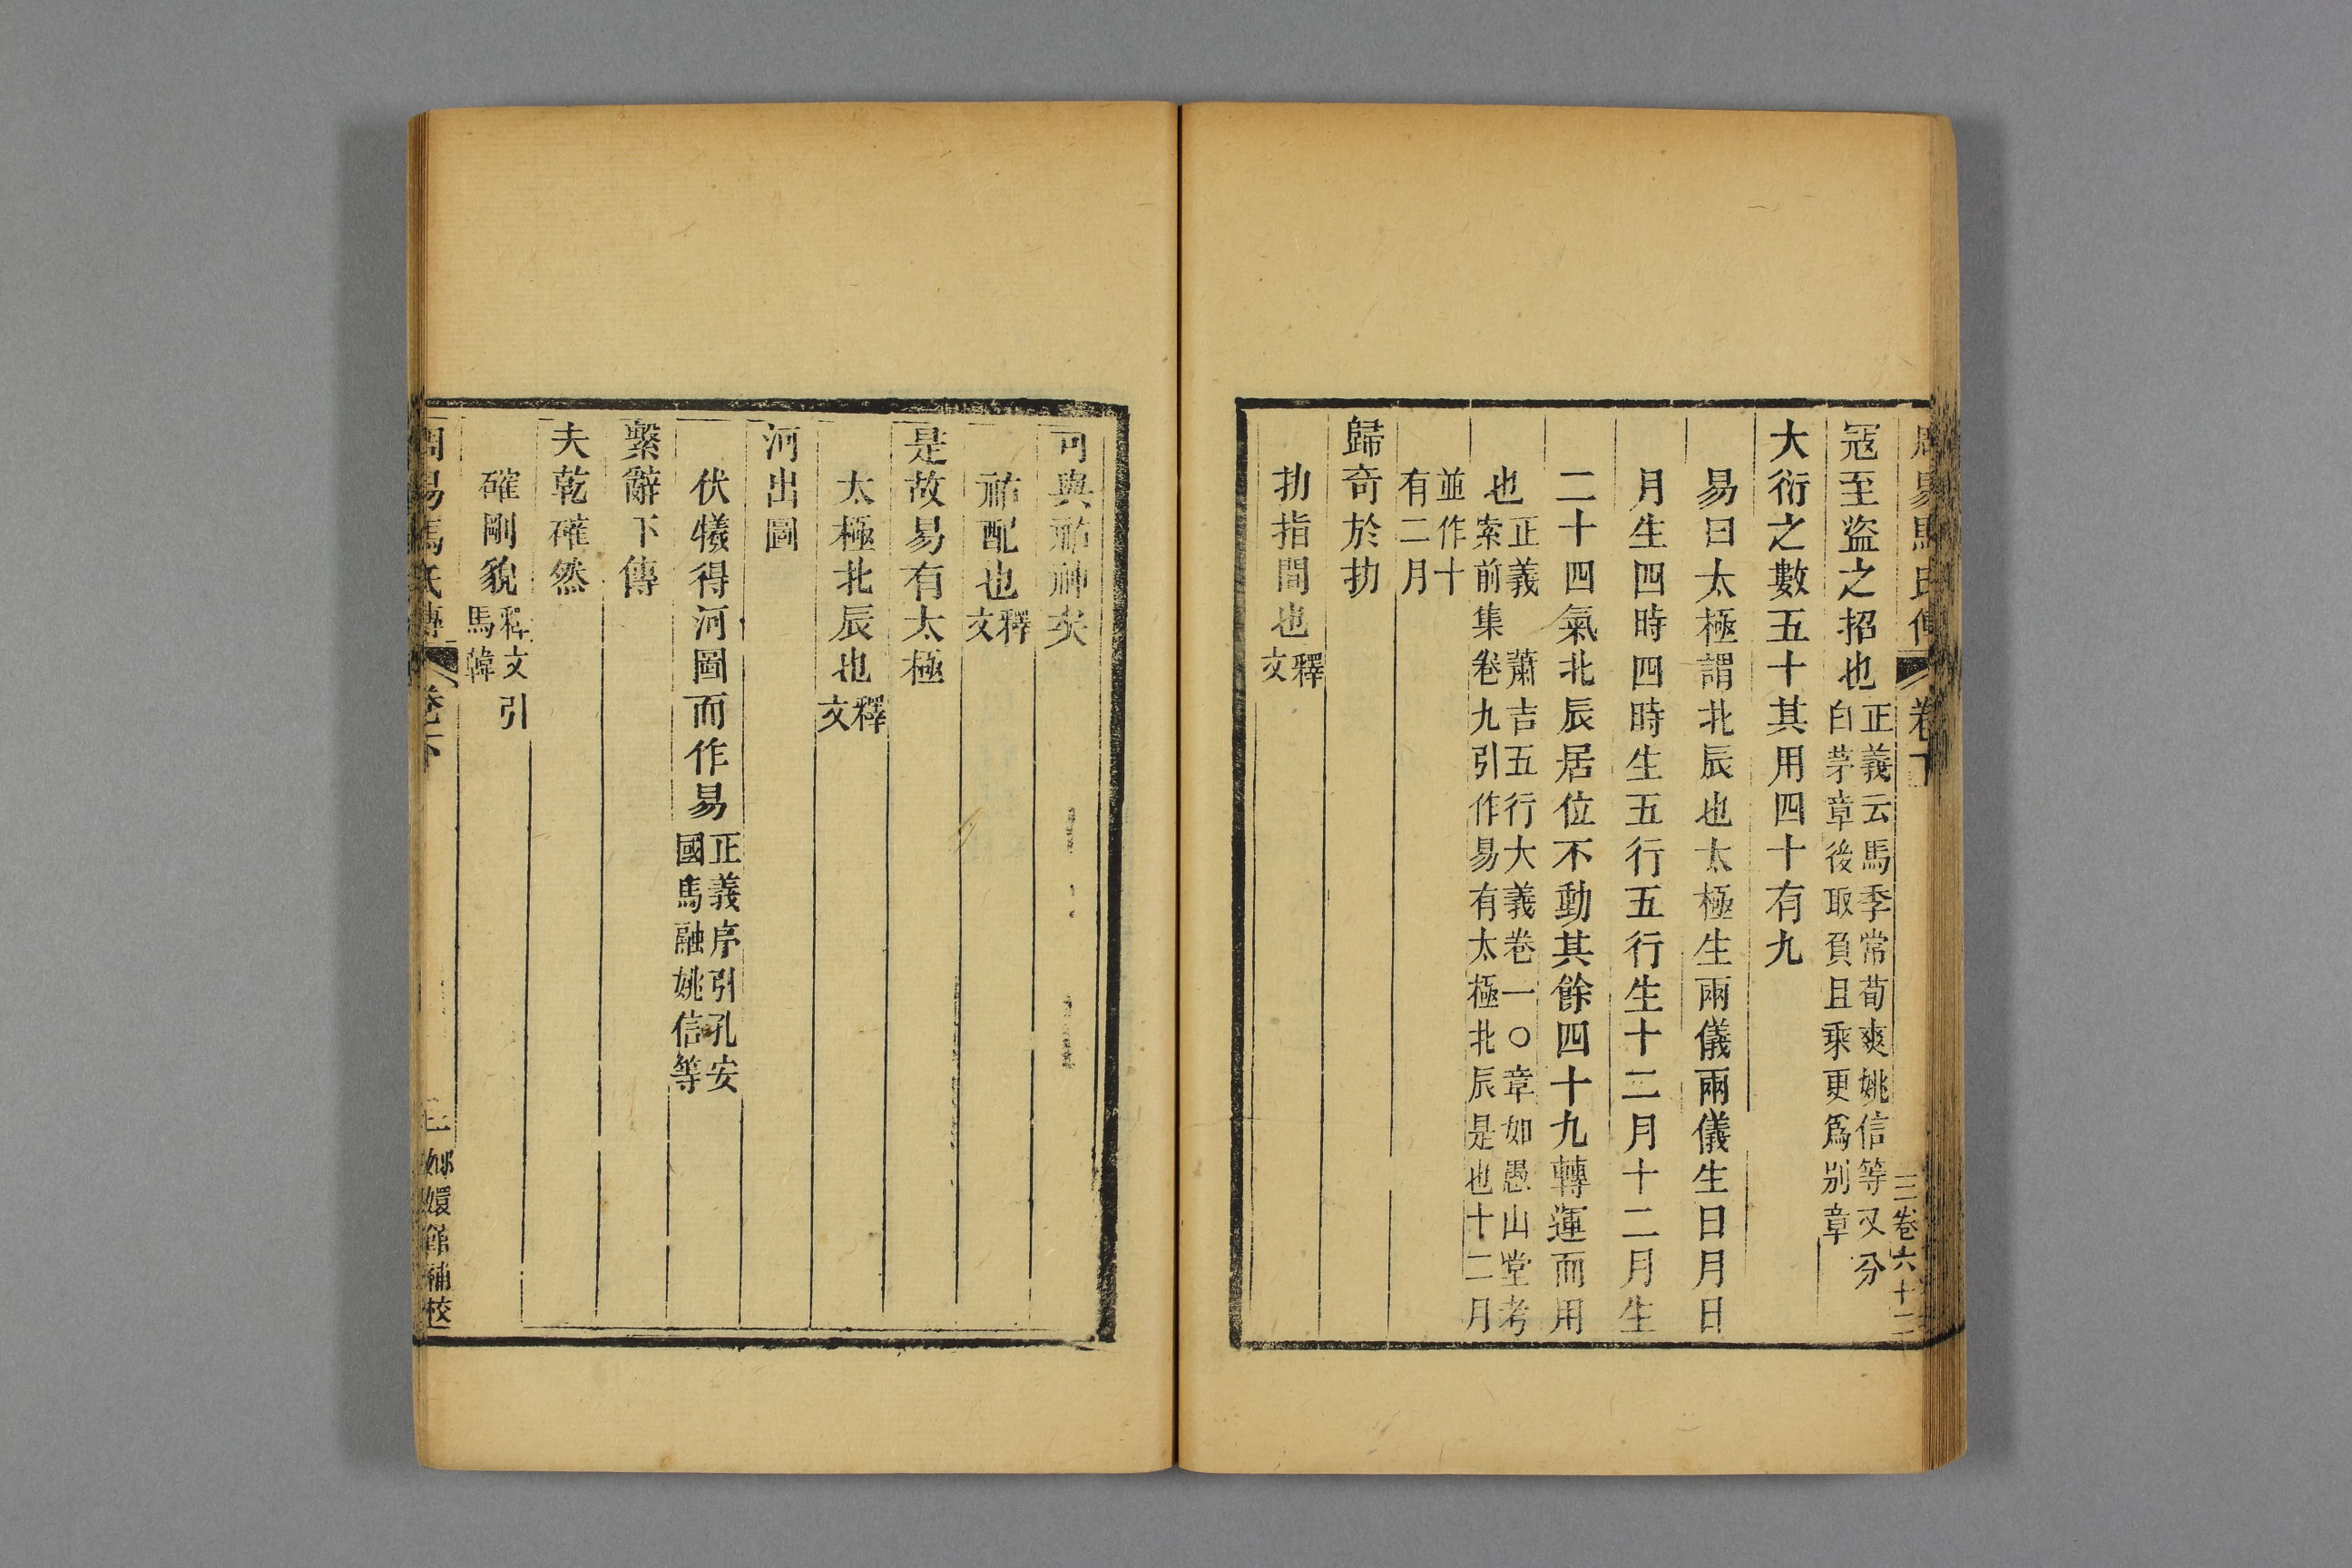 周易馬氏傳 卷下 三 卷六十二
寇至盜之招也正義云馬季常荀爽姚信等又分
白茅章後取負且乘更爲別章
大衍之數五十其用四十有九
易曰太極謂北辰也太極生兩儀兩儀生日月日
月生四時四時生五行五行生十二月十二月生
二十四氣北辰居位不動其餘四十九轉運而用
也正義 蕭吉五行大義卷一〇章如愚山堂考
索前集卷九引作易有太極北辰是也十二月
並作十
有二月
歸奇於扐
扐指間也釋
文
可與祐神矣
祐配也釋
文
是故易有太極
太極北辰也釋
文
河出圖
伏犧得河圖而作易正義序引孔安
國馬融姚信等
繫辭下傳
夫乾確然
確剛貌釋文引
馬韓
周易馬氏傳 卷下 嫏嬛館補校